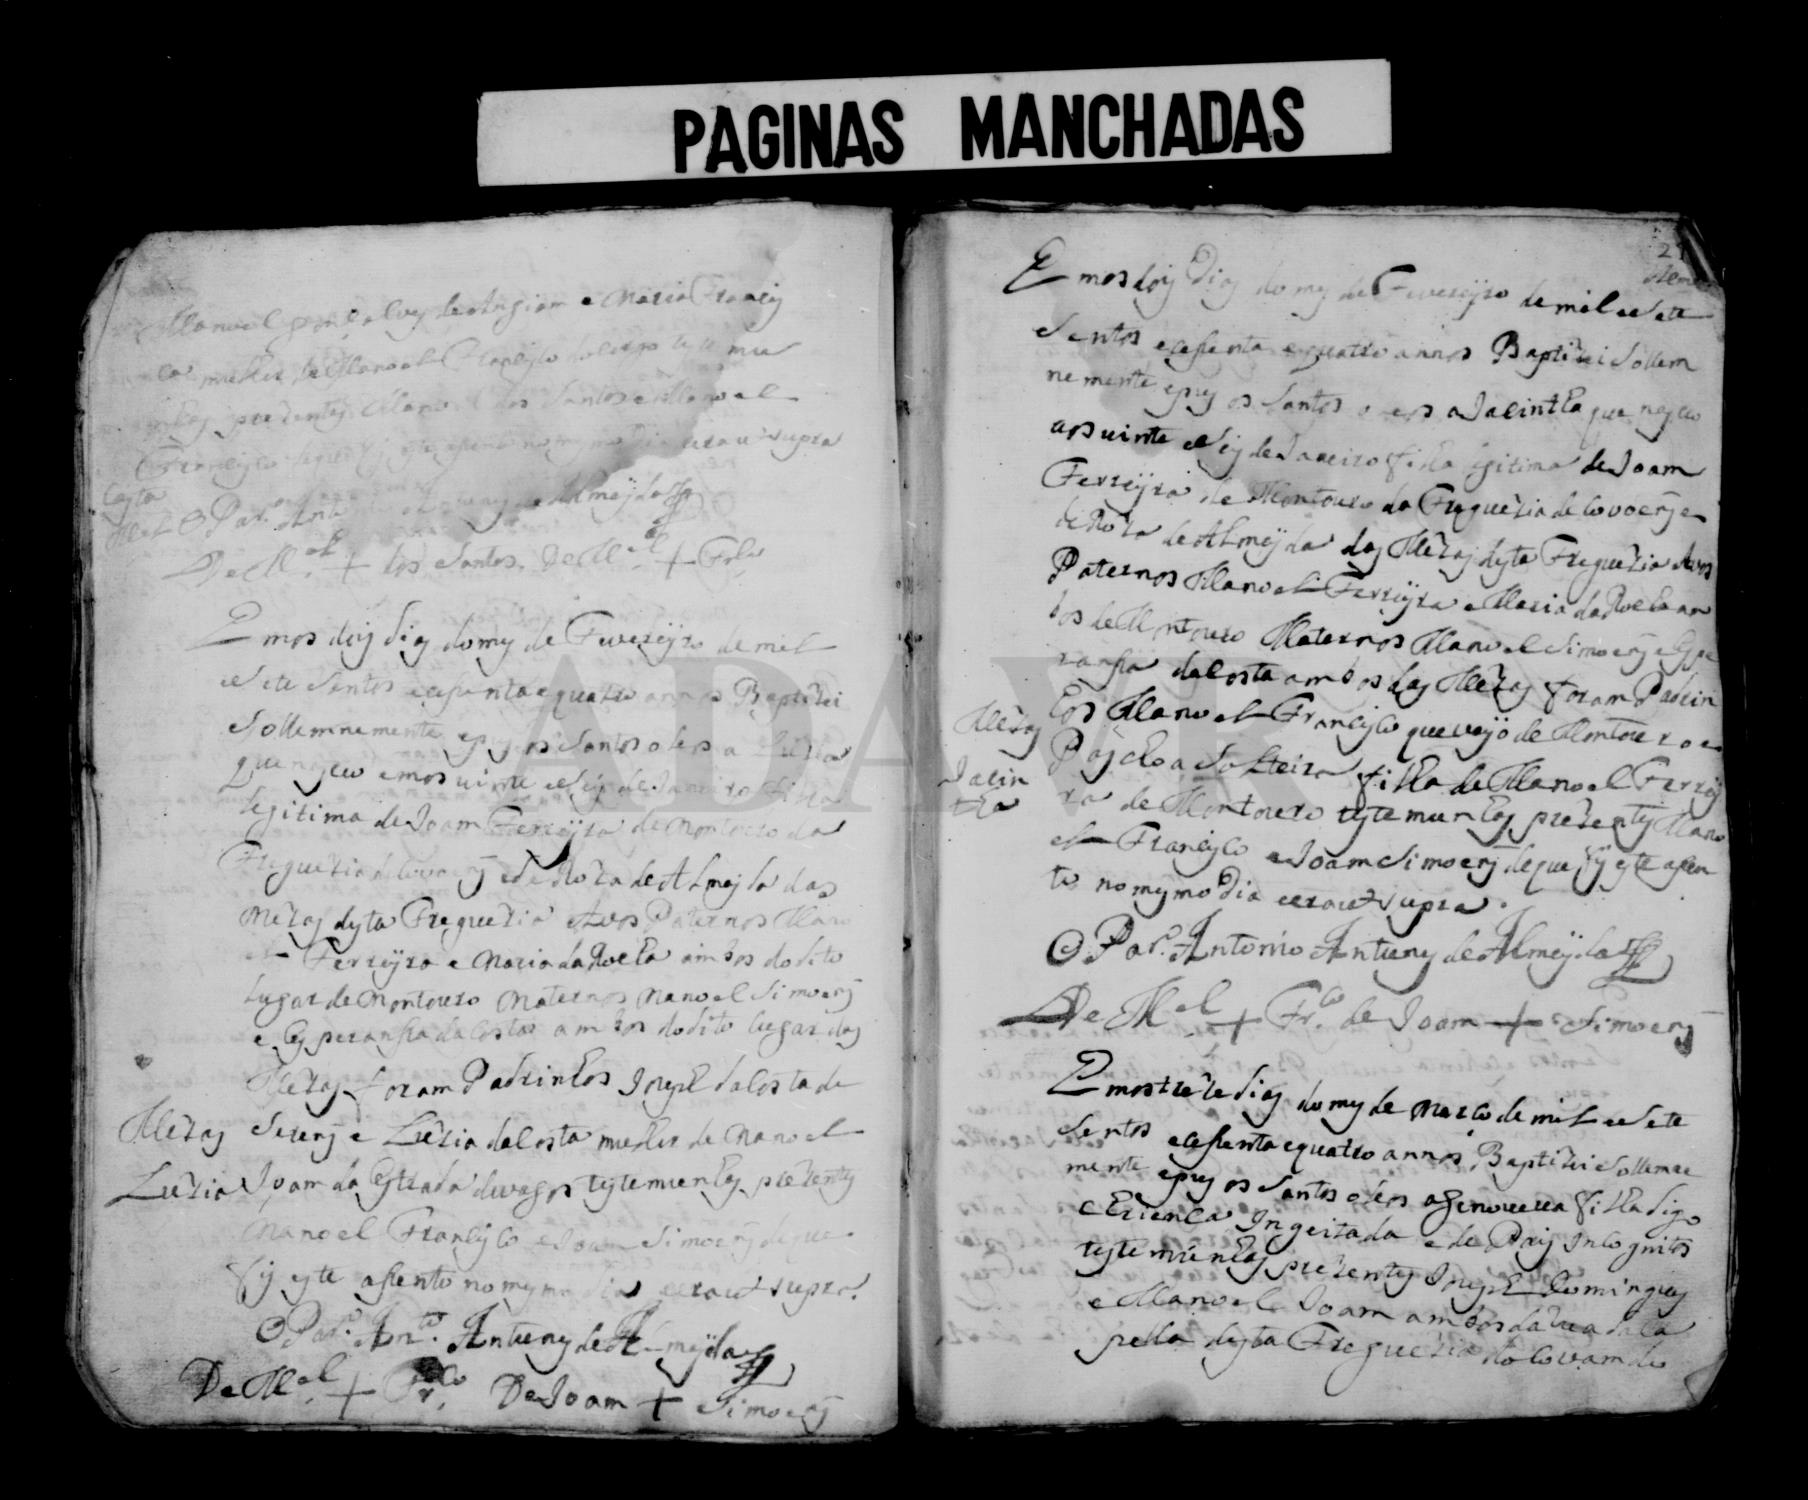 PAGINAS MANCHADAS
Manoel e Maria Francis
ca mulher de Manoel Francisco teste mu
nhas prezentes Manoel dos Santos e Manoel
Francisco no mesmo Dia era ut supra
O Par.º de Almeyda
De M.el + dos Santos. De M.el + Fr.co
Emos dois dias do mes de Fevereyro de mil
e Sete Sentos e cessenta e quatro annos Baptizei
Sollemnemente e pus os Santos oleos a Luzia
que nasceo emos uinte e Seis de Janeiro filha
legitima de Joam Ferreyra de Montouro da
Freguezia de Covoens e de Roza de Almeyda das
Mezas desta Freguezia Avos Paternos Mano
el Ferreyra e Maria da Rocha ambos do dito
lugar de Montouro Maternos Manoel Simoens
e Esperansa da Costa ambos do dito lugar das
Mezas foram Padrinhos Joseph da Costa de
Mezas
Luzia
Serens e Luzia da Costa mulher de Manoel
Joam da Estrada de vagos testemunhas prezentes
Manoel Francisco e Joam Simoens de que
fis este assento no mesmo dia era ut supra.
O Par.º Ant.º Antunes de Almeyda
De M.el + Fr.co De Joam + Simoens
Emos dois Dias do mes de Fevereyro de mil e Sete
Sentos e cessenta e quatro annos Baptizei Sollem
nemente e pus os Santos oleos a Jacintha que nasceo
aos uinte e Seis de Janeiro filha legitima de Joam
Ferreyra de Montouro da Freguezia de Covoens e
de Roza de Almeyda das Mezas desta Freguezia Avos
Paternos Manoel Ferreyra e Maria da Rocha am
bos de Montouro Maternos Manoel Simoens e Espe
ransa da Costa ambos das Mezas foram Padrin
Mezas
Jacin
tha
hos Manoel Francisco que veyo de Montouro e
Paschoa Solteira filha de Manoel Ferrey
ra de Montouro testemunhas prezentes Mano
el Francisco e Joam Simoens de que fis este assen
to no mesmo Dia era ut supra.
O Par.º Antonio Antunes de Almeyda
De M.el + Fr.co de Joam + Simoens
Emos treze dias do mes de Março de mil e Sete
Sentos e cessenta e quatro annos Baptizei Sollemne
mente e pus os Santos oleos a Genoveva filha digo
e Crianca Ingeitada e de Pais Incognitos
testemunhas prezentes Joseph Domingues
e Manoel Joam ambos da da Ca
pella desta Freguezia do Covam do
ADAVR